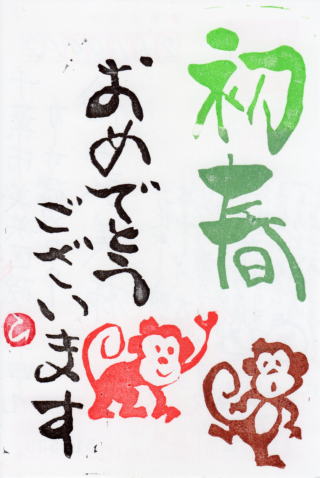 初春
おめでとう
ございます